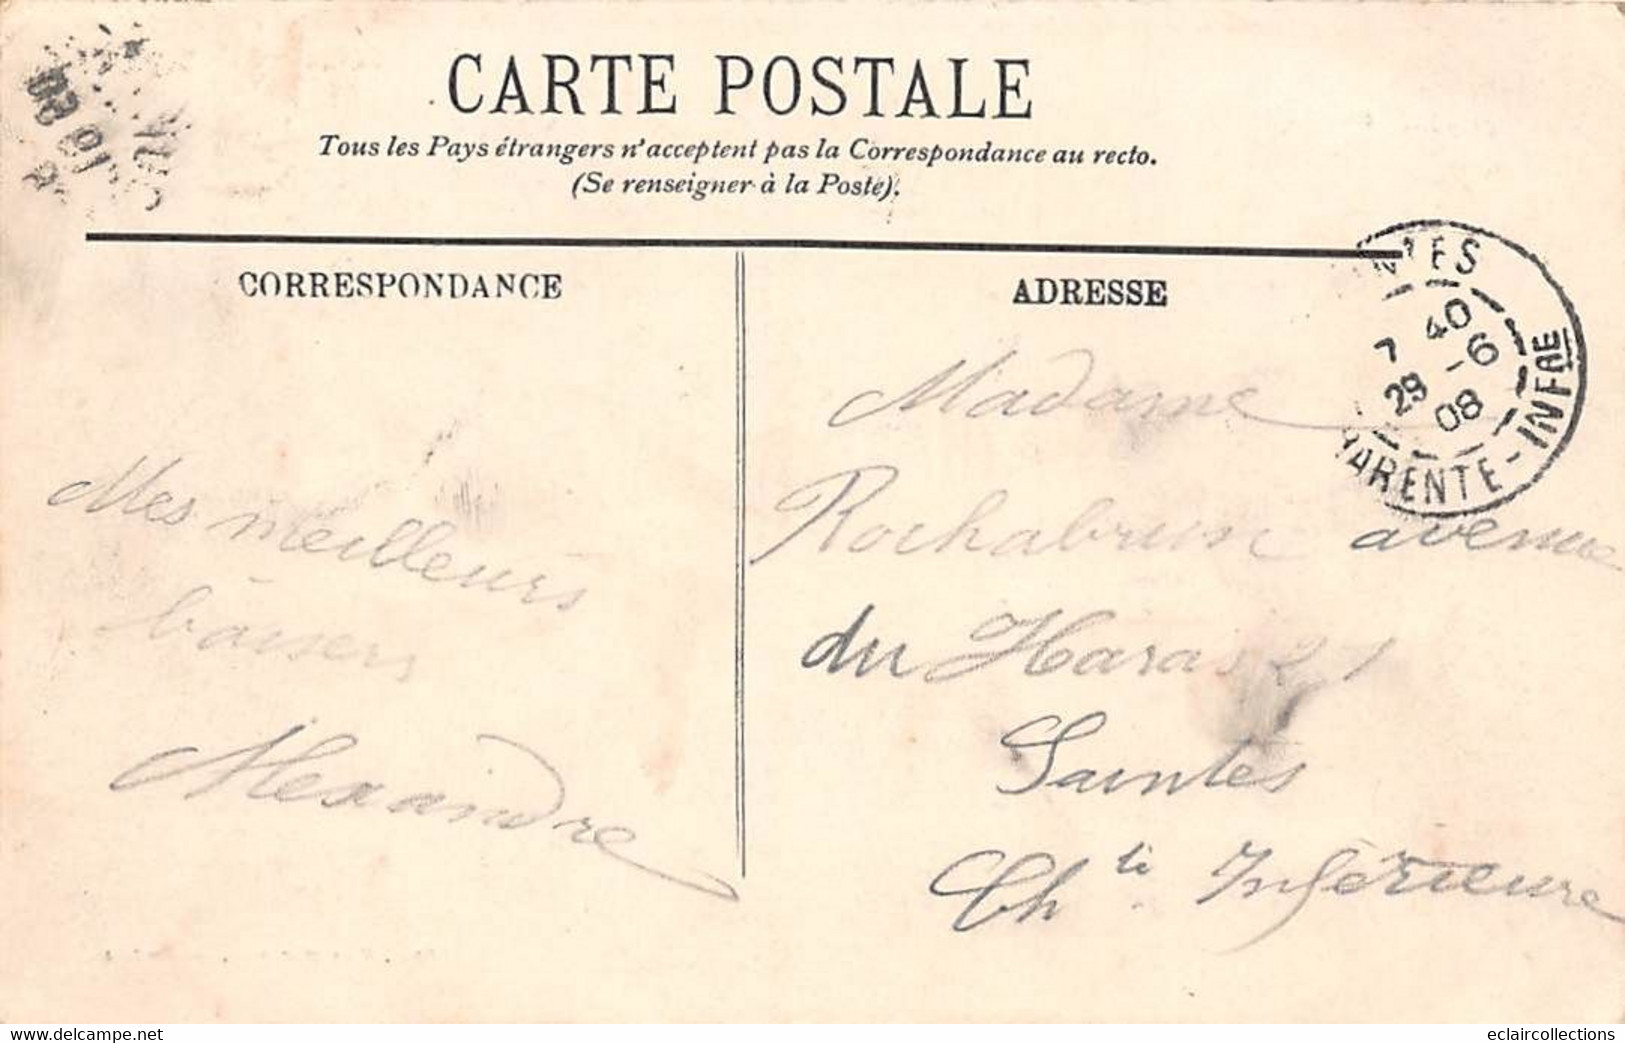 CARTE POSTALE
Tous les Pays étrangers n'acceptent pas la Correspondance au recto.
(Se renseigner à la Poste).
CORRESPONDANCE
ADRESSE
NTES
7 40
29 -6
08
HARENTE-INFRE
Mes meilleurs
baisers
Alexandre
Madame
Rochabrun avenue
du Haras 21
Saintes
Ch te Inférieure
www.delcampe.net
eclaircollections